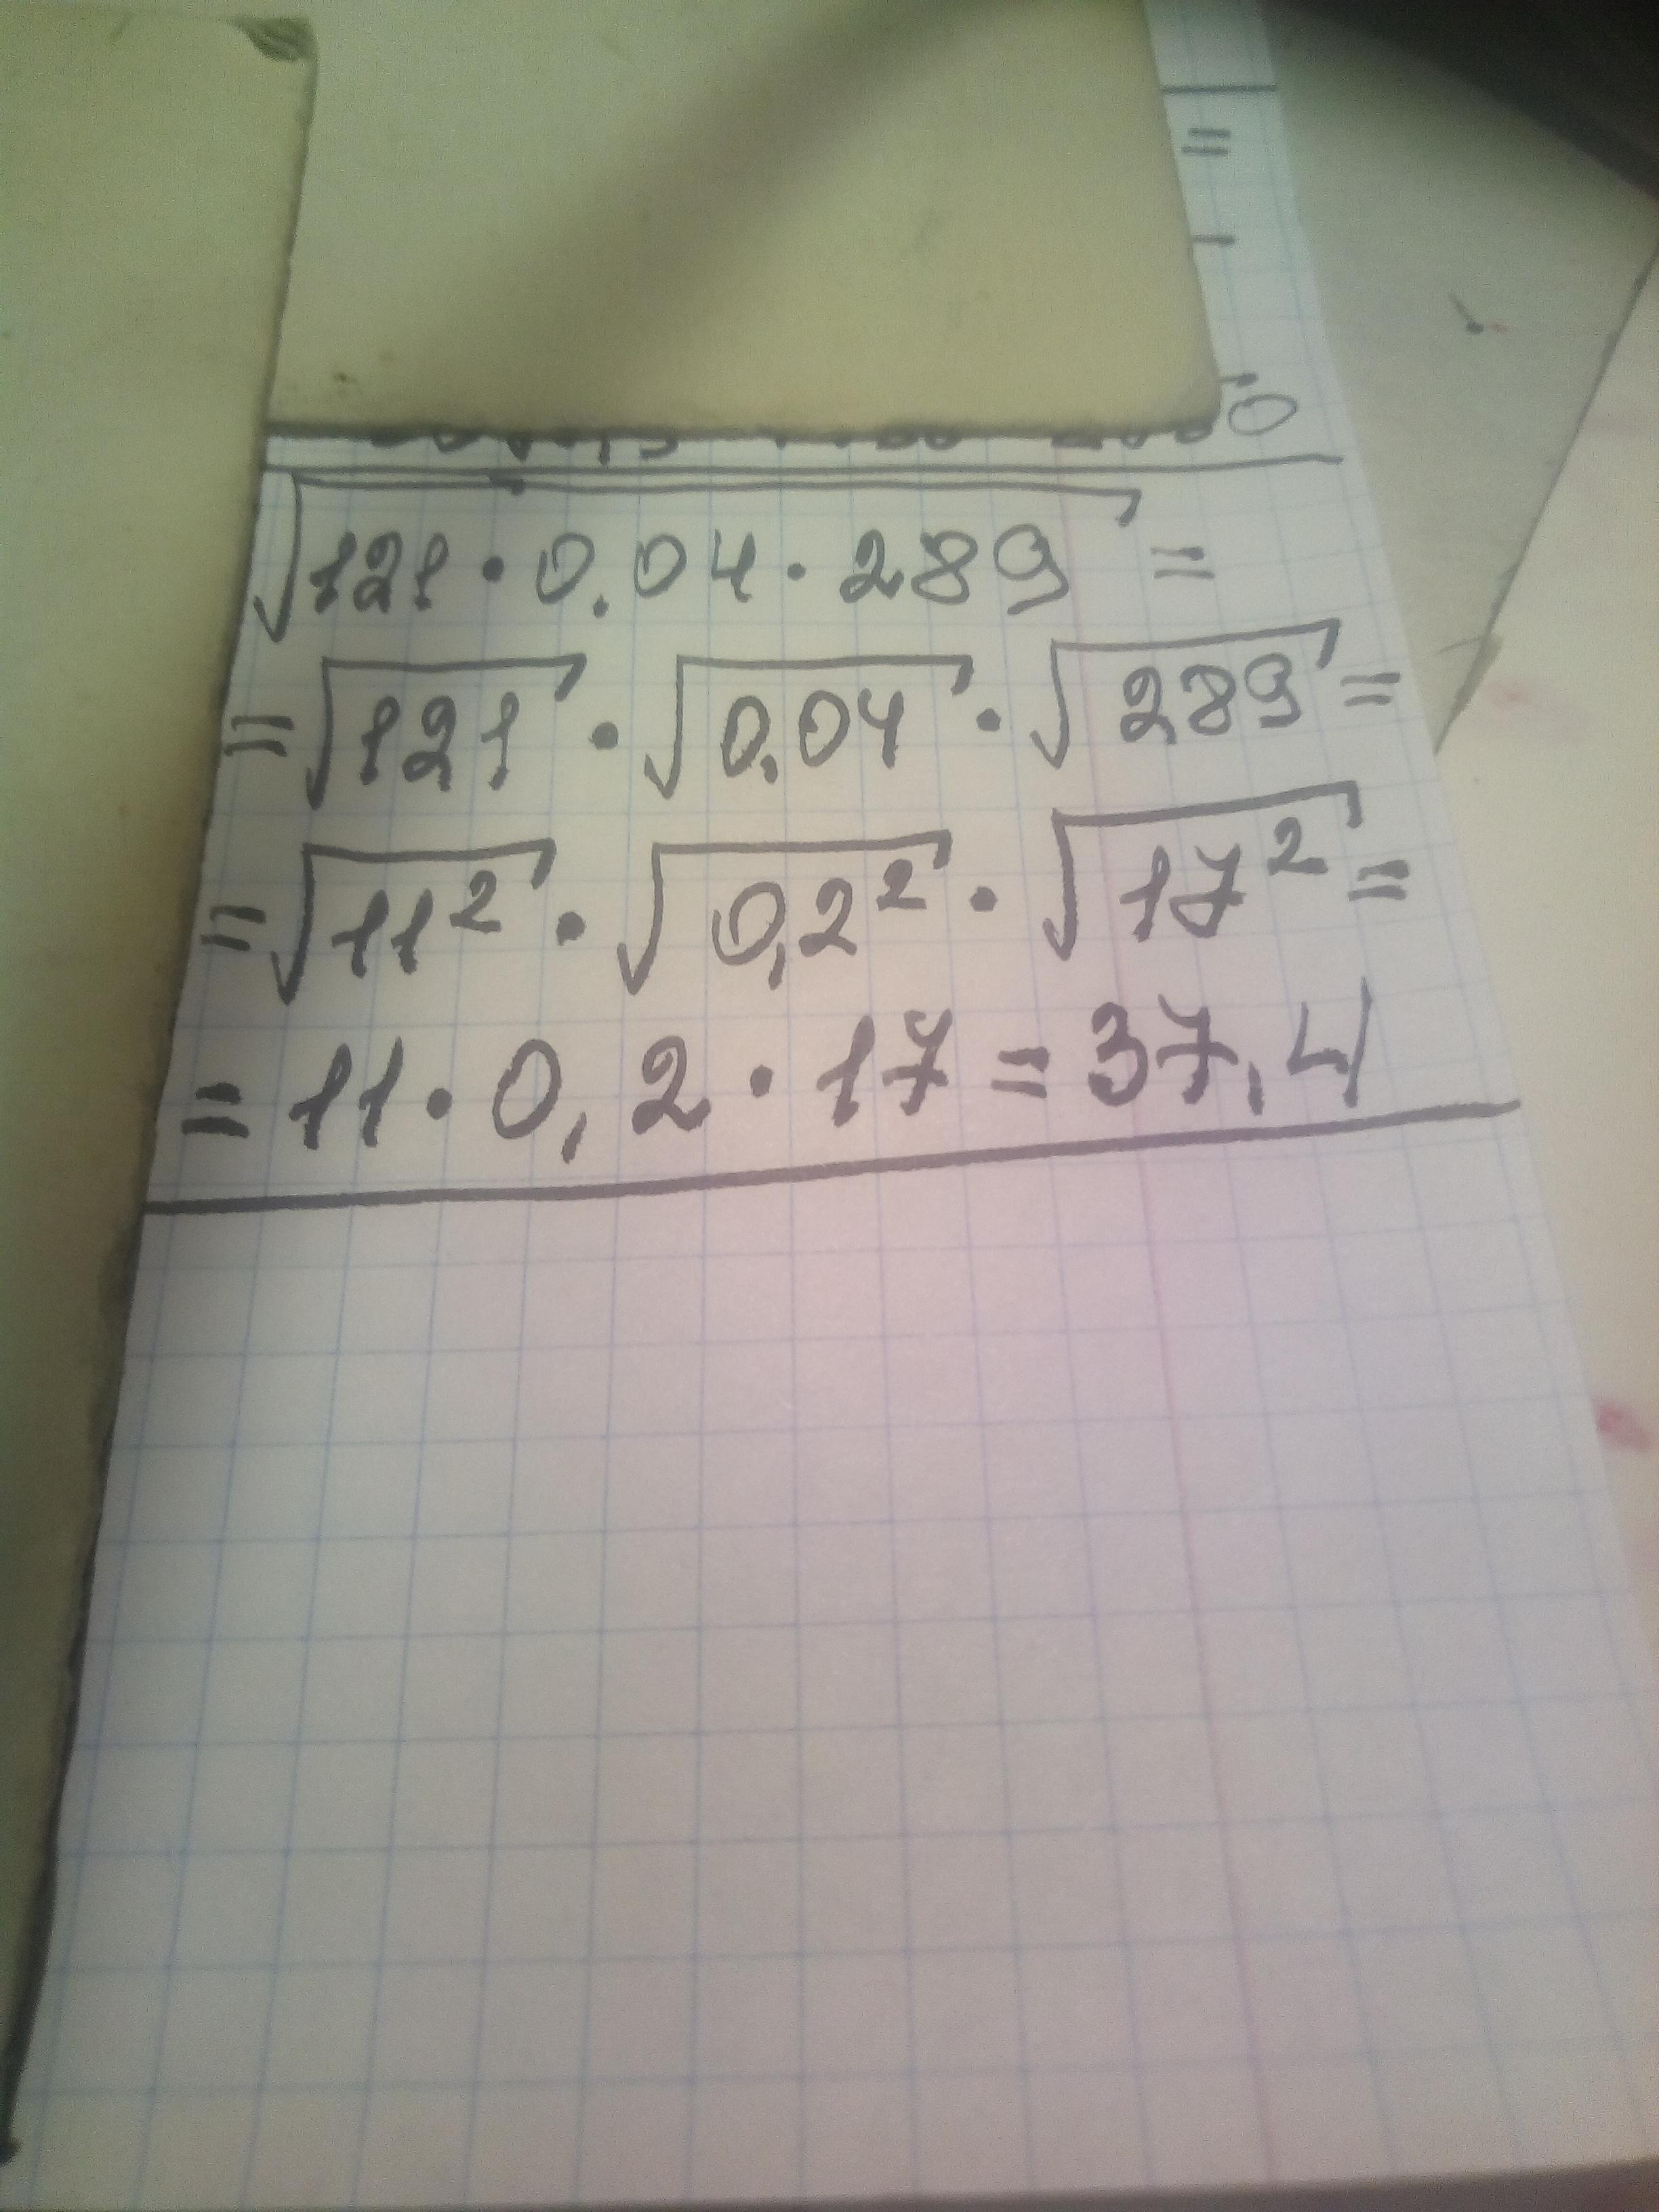 √121·0,04·289 =
=√121·√0,04·√289=
=√11²·√0,2²·√17²=
=11·0,2·17=37,4